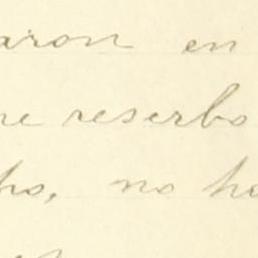 aron en
me reserbo
po, no ha